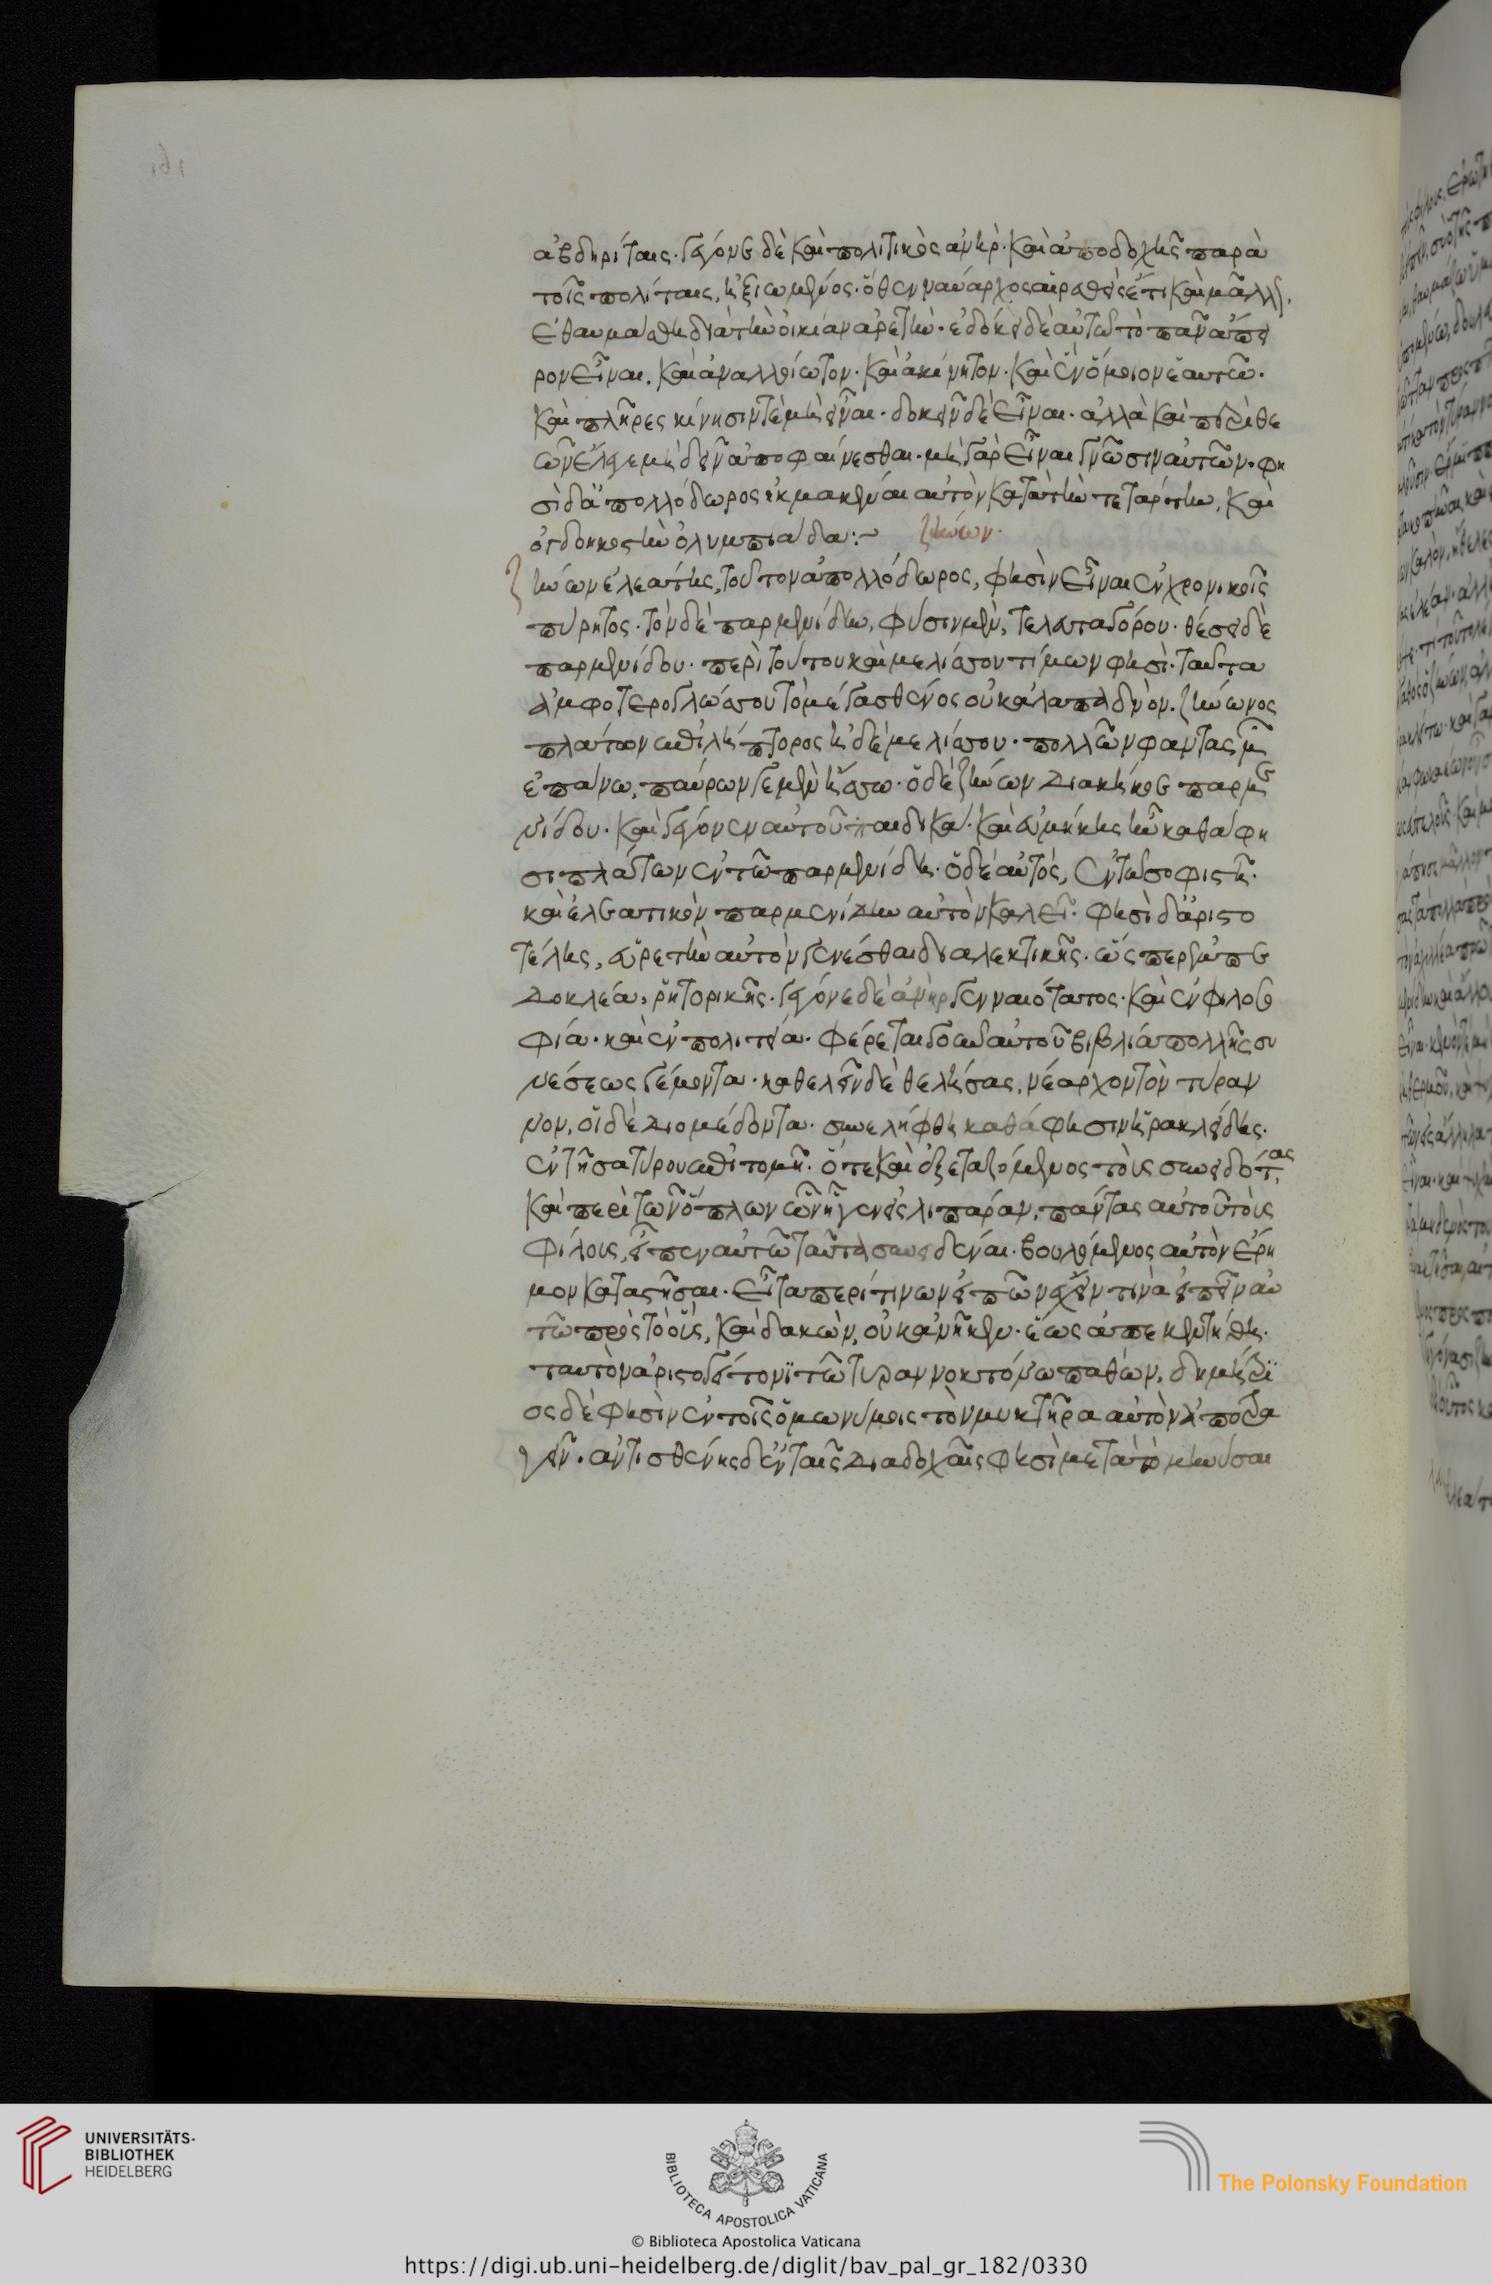 ἀβδηρίταις. γέγονε δὲ καὶ πολιτικὸς ἀνὴρ. καὶ ἀποδοχῆς παρὰ
τοῖς πολίταις, ἠξιωμένος. ὅθεν ναύαρχος αἱρεθεὶς ἔτι καὶ μᾶλλον
ἐθαυμάσθη διὰ τὴν οἰκίαν ἀρετὴν. ἐδόκει δὲ αὐτῶ τὸ πᾶν ἄπει
ρον εἶναι. καὶ ἀναλλοίωτον. καὶ ἀκίνητον. καὶ ἓν ὅμοιον ἑαυτῶ.
καὶ πλῆρες κίνησίν τε μὴ εἶναι. δοκεῖν δὲ εἶναι. ἀλλὰ καὶ περὶ θε
ῶν ἔλεγε μὴ δεῖν ἀποφαίνεσθαι. μὴ γὰρ εἶναι γνῶσιν αὐτῶν. φη
σὶ δ' ἀπολλόδωρος ἠκμακέναι αὐτὸν κατὰ τὴν τετάρτην, καὶ
ὀγδοηκοστὴν ὀλυμπιάδα:~ ζήνων.
ζήνων ἐλεάτης, τοῦτον ἀπολλόδωρος, φησὶν εἶναι ἐν χρονικοῖς
πύρητος. τὸν δὲ παρμενίδην, φύσιν μὲν, τελευταγόρου. θέσει δὲ
παρμενίδου. περὶ τούτου καὶ μελίσσου τίμων φησὶ. ταῦτα
ἀμφοτερογλώσσου τὸ μέγα σθένος οὐκ ἀλαπαδνὸν. ζήνωνος
πάντων ἐπιλήπτορος ἠδὲ μελίσσου. πολλῶν φαντασμῶν
ἐπάνω, παύρων γε μὲν ἥσσω. ὁ δὲ ζήνων διακήκοε παρμε
νίδου. καὶ γέγονεν αὐτοῦ παιδικά. καὶ εὐμήκης ἦν καθά φη
σι πλάτων ἐν τῶ παρμενίδη. ὁ δὲ αὐτὸς, ἐν τῶ σοφιστῆ.
καὶ ἐλεατικὸν παρμενίδην αὐτὸν καλεῖ. φησὶ δ' ἀριστο
τέλης, εὑρετὴν αὐτὸν γενέσθαι διαλεκτικῆς. ὥσπερ ἐμπε
δοκλέα, ῥητορικῆς. γέγονε δὲ ἀνὴρ γενναιότατος. καὶ ἐν φιλοσο
φία. καὶ ἐν πολιτεία. φέρεται γοῦν αὐτοῦ βιβλία πολλῆς συ
νέσεως γέμοντα. καθελεῖν δὲ θελήσας, νέαρχον τὸν τύραν
νον, οἱ δὲ διομέδοντα. συνελήφθη καθά φησιν ἡρακλείδης.
ἐν τῆ σατύρου ἐπιτομῆ. ὅτε καὶ ἐξεταζόμενος τοὺς συνειδότας
καὶ περὶ τῶν ὅπλων ὧν ἦγεν εἰς λιπάραν, πάντας αὐτοῦ τοὺς
φίλους, εἶπεν αὐτῶ ταῦτα συνειδέναι. βουλόμενος αὐτὸν ἔρη
μον καταστῆσαι. εἶτα περί τινων εἰπὼν ἔχειν τινὰ εἰπεῖν αὐ
τῶ πρὸς τὸ οὖς, καὶ δακὼν, οὐκ ἀνῆκεν. ἕως ἀπεκεντήθη.
ταυτὸν ἀριστογείτονι τῶ τυραννοκτόνω παθὼν, δημήτρι
ος δέ φησιν ἐν τοῖς ὁμωνύμοις τὸν μυκτῆρα αὐτὸν ἀποτρα
γεῖν. ἀντισθένης δ' ἐν ταῖς διαδοχαῖς φησὶ μετὰ τὸ μηνύσαι
UNIVERSITÄTS-
BIBLIOTHEK
HEIDELBERG
BIBLIOTECA APOSTOLICA VATICANA
The Polonsky Foundation
© Biblioteca Apostolica Vaticana
https://digi.ub.uni-heidelberg.de/diglit/bav_pal_gr_182/0330